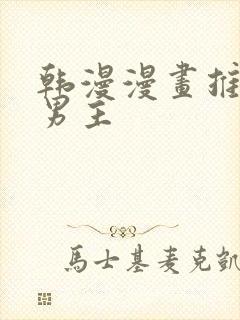 韩漫漫畫推
男主
馬士基麦克凱